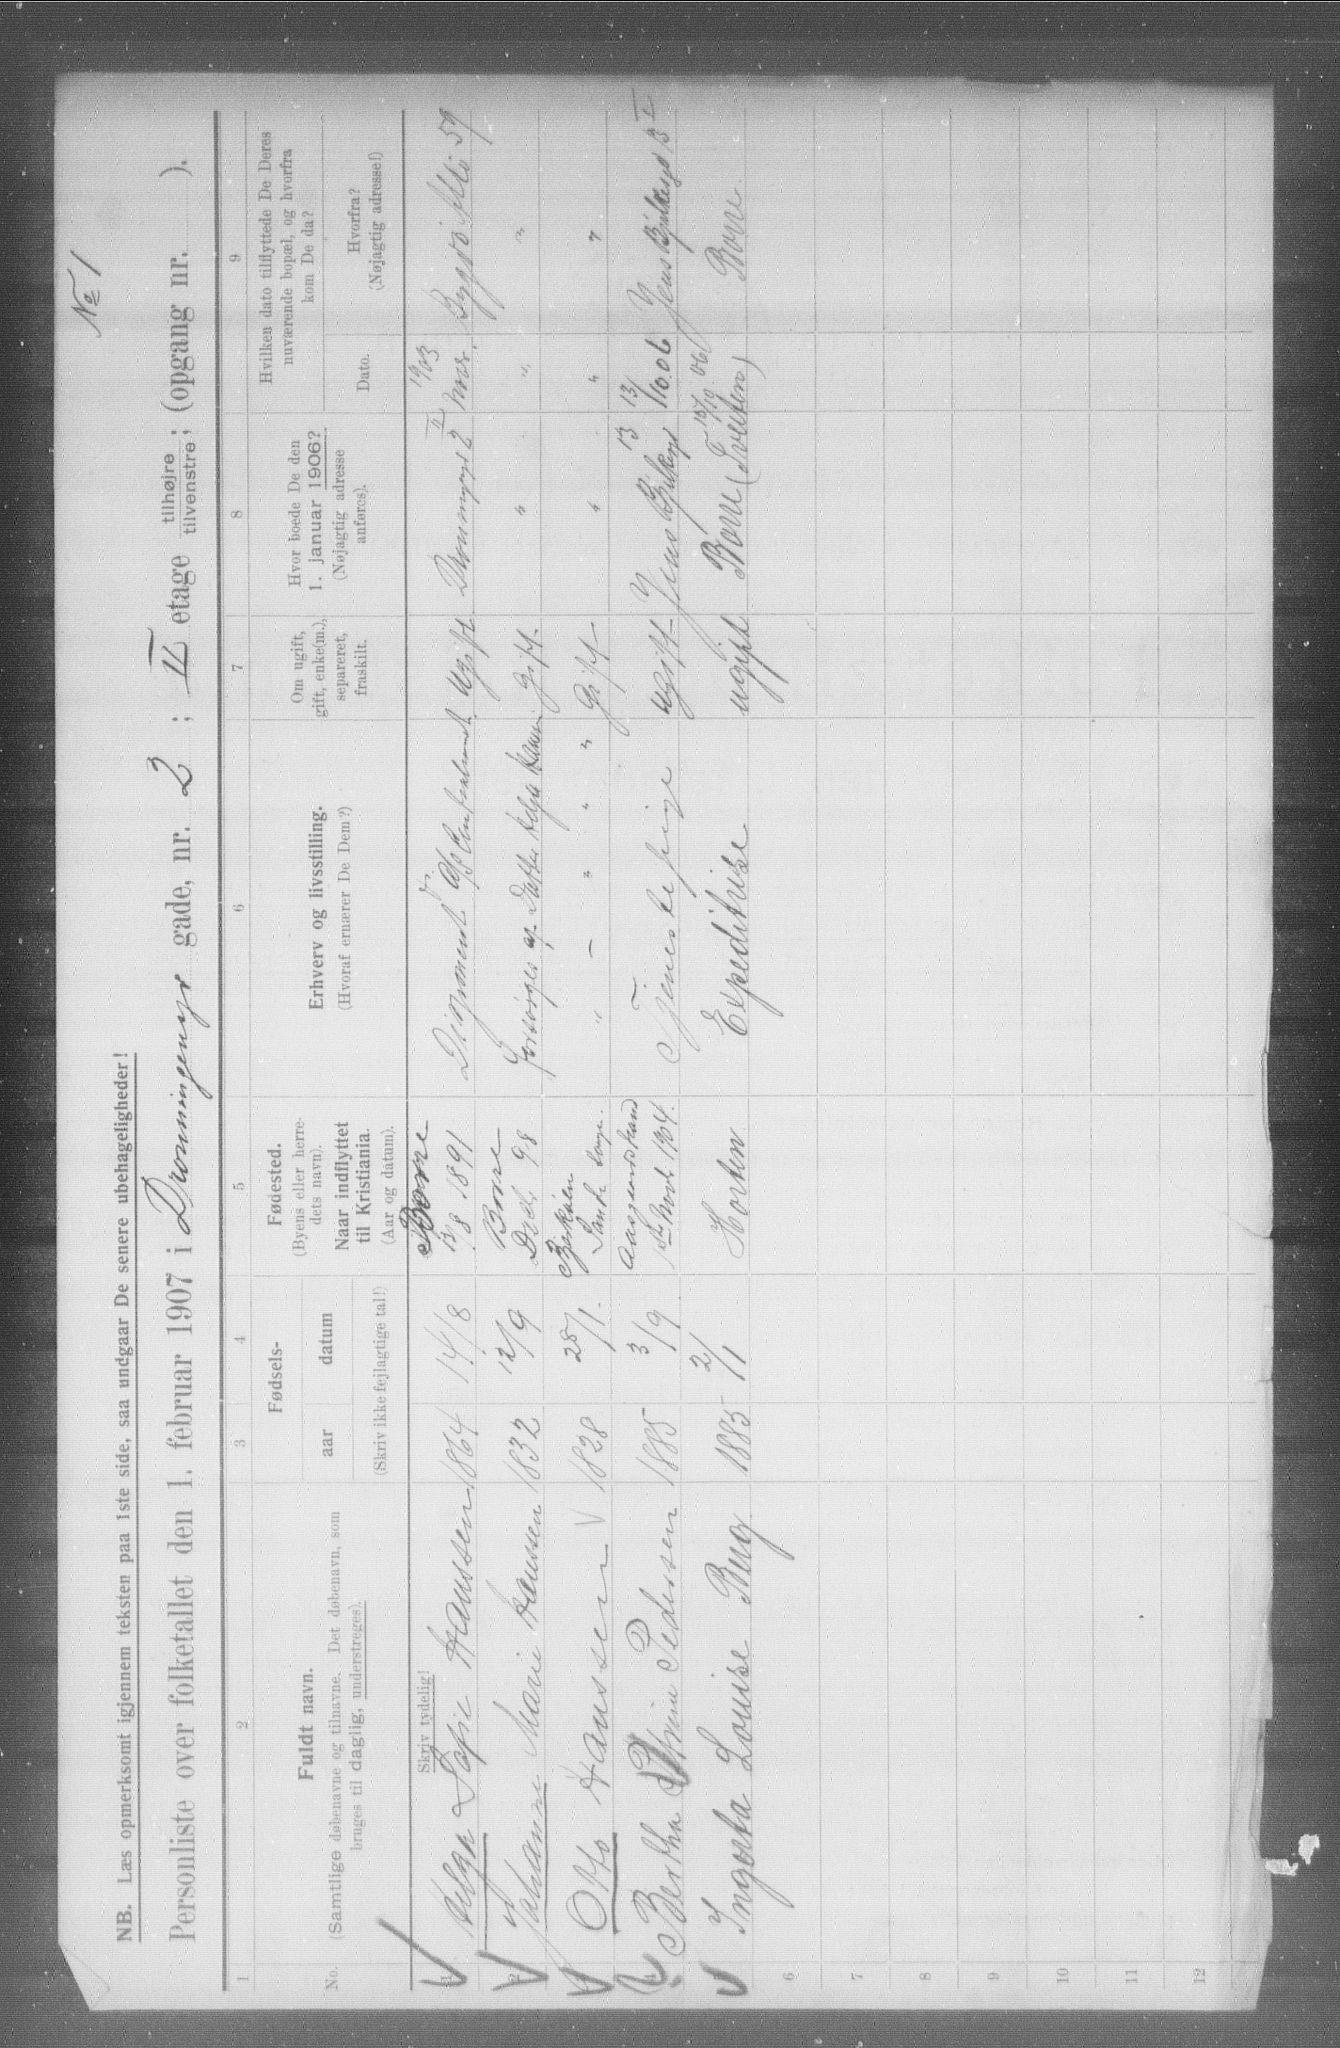 No 1
NB. Læs opmerksomt igjennem teksten paa 1ste side, saa undgaar De senere ubehageligheder!
Personliste over folketallet den 1. februar 1907 i Dronningensgt gade, nr. 2 ; II etage tilhøjre tilvenstre ; (opgang nr. ).
1 2 3 4 5 6 7 8 9
No.
Fuldt navn.
(Samtlige døbenavne og tilnavne. Det døbenavn, som
bruges til daglig, understreges).
Fødsels-
aar datum
(Skriv ikke fejlagtige tal!)
Fødested.
(Byens eller herre-
dets navn).
Naar indflyttet
til Kristiania.
(Aar og datum).
Erhverv og livsstilling.
(Hvoraf ernærer De Dem?)
Om ugift,
gift, enke(m.),
separeret,
fraskilt.
Hvor boede De den
1. januar 1906?
(Nøjagtig adresse
anføres).
Hvilken dato tilflyttede De Deres
nuværende bopæl, og hvorfra
kom De da?
Dato.
Hvorfra?
(Nøjagtig adresse!)
Skriv tydelig!
1 Helga Sofie Hanssen 1864 14/8 Borre 8 1891 Ugift Dronningsgt 2 II Bygdø Allé 59
2 Johanne Marie Hanssen 1832 12/9 Borre 98 Forsørges af Datter Helga Hanssen Gift " " "
3 Otto Hanssen 1828 28/1 " — " " " Gift " " "
4 Bertha Pedersen 1885 3/9 Aasgaardstrand 1904. Tjenestepige ugift Jens Bjelkesgt 13 13/10.06 Jens Bjelkesgt 13 I
5 Ingerta Louise Berg 1885 2/1 Horten Expeditrise ugift Borre (Tveiten) 15/10 06 Borre
6
7
8
9
10
11
12